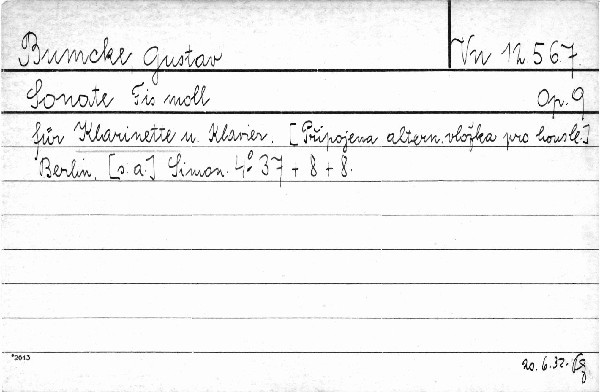 Bumcke Gustav Vn 12.567.
Sonate Fis moll Op. 9
für Klarinette u. Klavier. [Připojena altern. vložka pro housle.]
Berlin, [s. a.] Simon. 4° 37 + 8 + 8.
*2013 20. 6. 32.